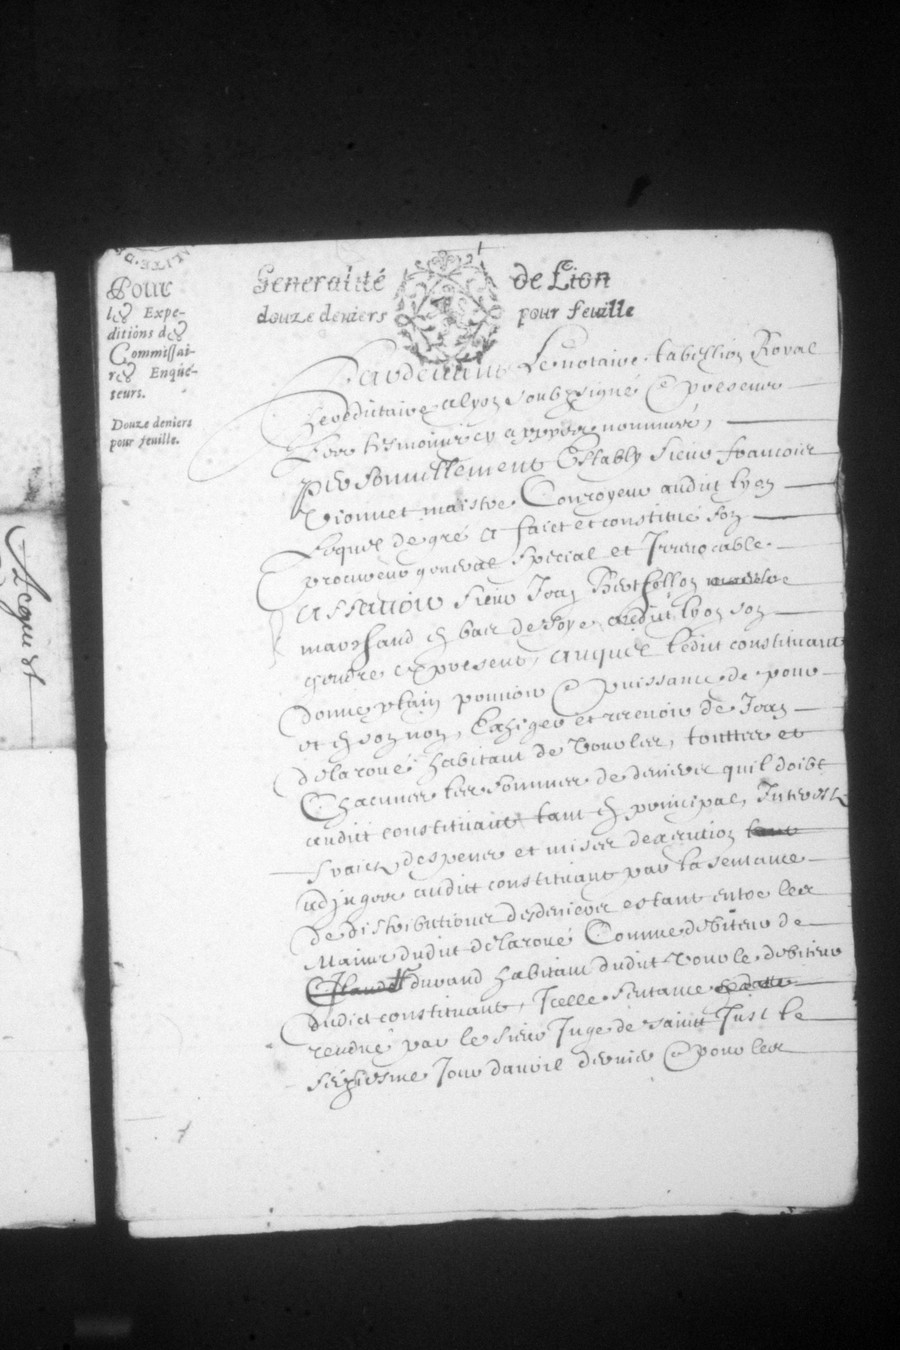 Pour
les Expe-
ditions des
Commissai-
res Enquê-
teurs.
Douze deniers
pour feuille.
Generalité de Lion
douze deniers pour feuille
Acquest
Pardevant Le notaire tabellion Royal
hereditaire a lyon soubzsigné & presence
Des tesmoings cy appres nommes,
personnellement Estably sieur francois
Vionnet maistre Conroyeur audict lyon
Lequel de gré a faict et constitué son
procureur general special et Irrevocable
assavoir sieur Jean Berthollon
marchand en bas de soye audict lyon son
gendre cy present, auquel ledict constituant
donne plain pouvoir & puissance de pour
et en son nom, Exhiger et recevoir de Jean
delaroue habitant de Vourles, touttes et
Chacunes les sommes de deniers quil doibt
audict constituant tant en principal, Interestz
fraictz despens et mises dexecution
adjuges audict constituant par la sentance
de distributions des deniers estant entre les
Mains dudict delaroue Comme debiteur de
durand habitant dudict Vourle debiteur
dudict constituant, Icelle sentance
rendue par le sieur Juge de sainct Just le
Jour davril dernier & pour les